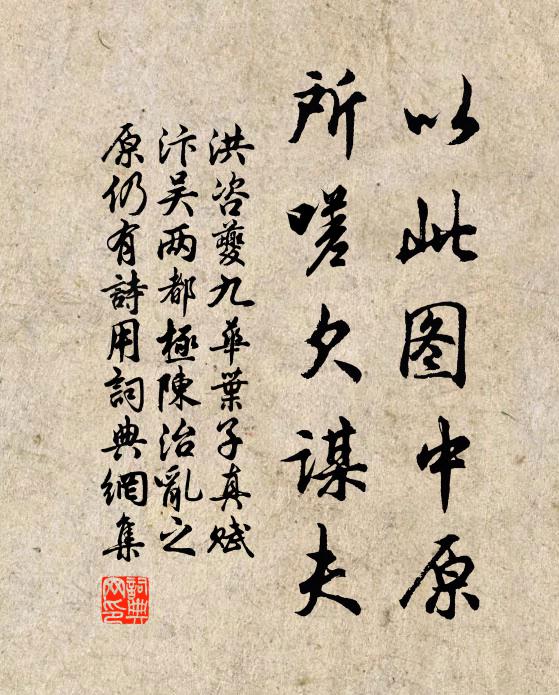 以此图中原
所嗟欠谋夫
洪咨夔九华葉子真赋
汴吴两都極陳治亂之
原仍有詩用詞典網集
詞典网印